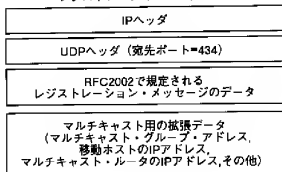 IPヘッダ
UDPヘッダ（宛先ポート=434）
RFC2002で規定される
レジストレーション・メッセージのデータ
マルチキャスト用の拡張データ
（マルチキャスト・グループ・アドレス，
移動ホストのIPアドレス，
マルチキャスト・ルータのIPアドレス，その他）